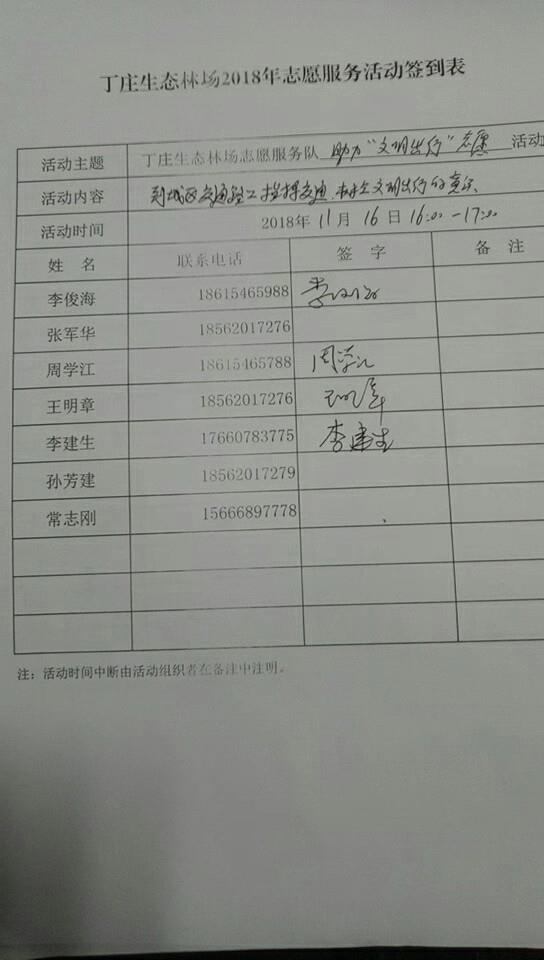 丁庄生态林场2018年志愿服务活动签到表
活动主题 丁庄生态林场志愿服务队 助力"文明出行"志愿 活动
活动内容 到城区交通路口指挥交通, 文明出行的意识
活动时间 2018年 11 月 16 日 16:00-17:00
姓 名 联系电话 签 字 备 注
李俊海 18615465988 李俊海
张军华 18562017276
周学江 18615465788 周学江
王明章 18562017276 王明章
李建生 17660783775 李建生
孙芳建 18562017279
常志刚 15666897778
注：活动时间中断由活动组织者在备注中注明。